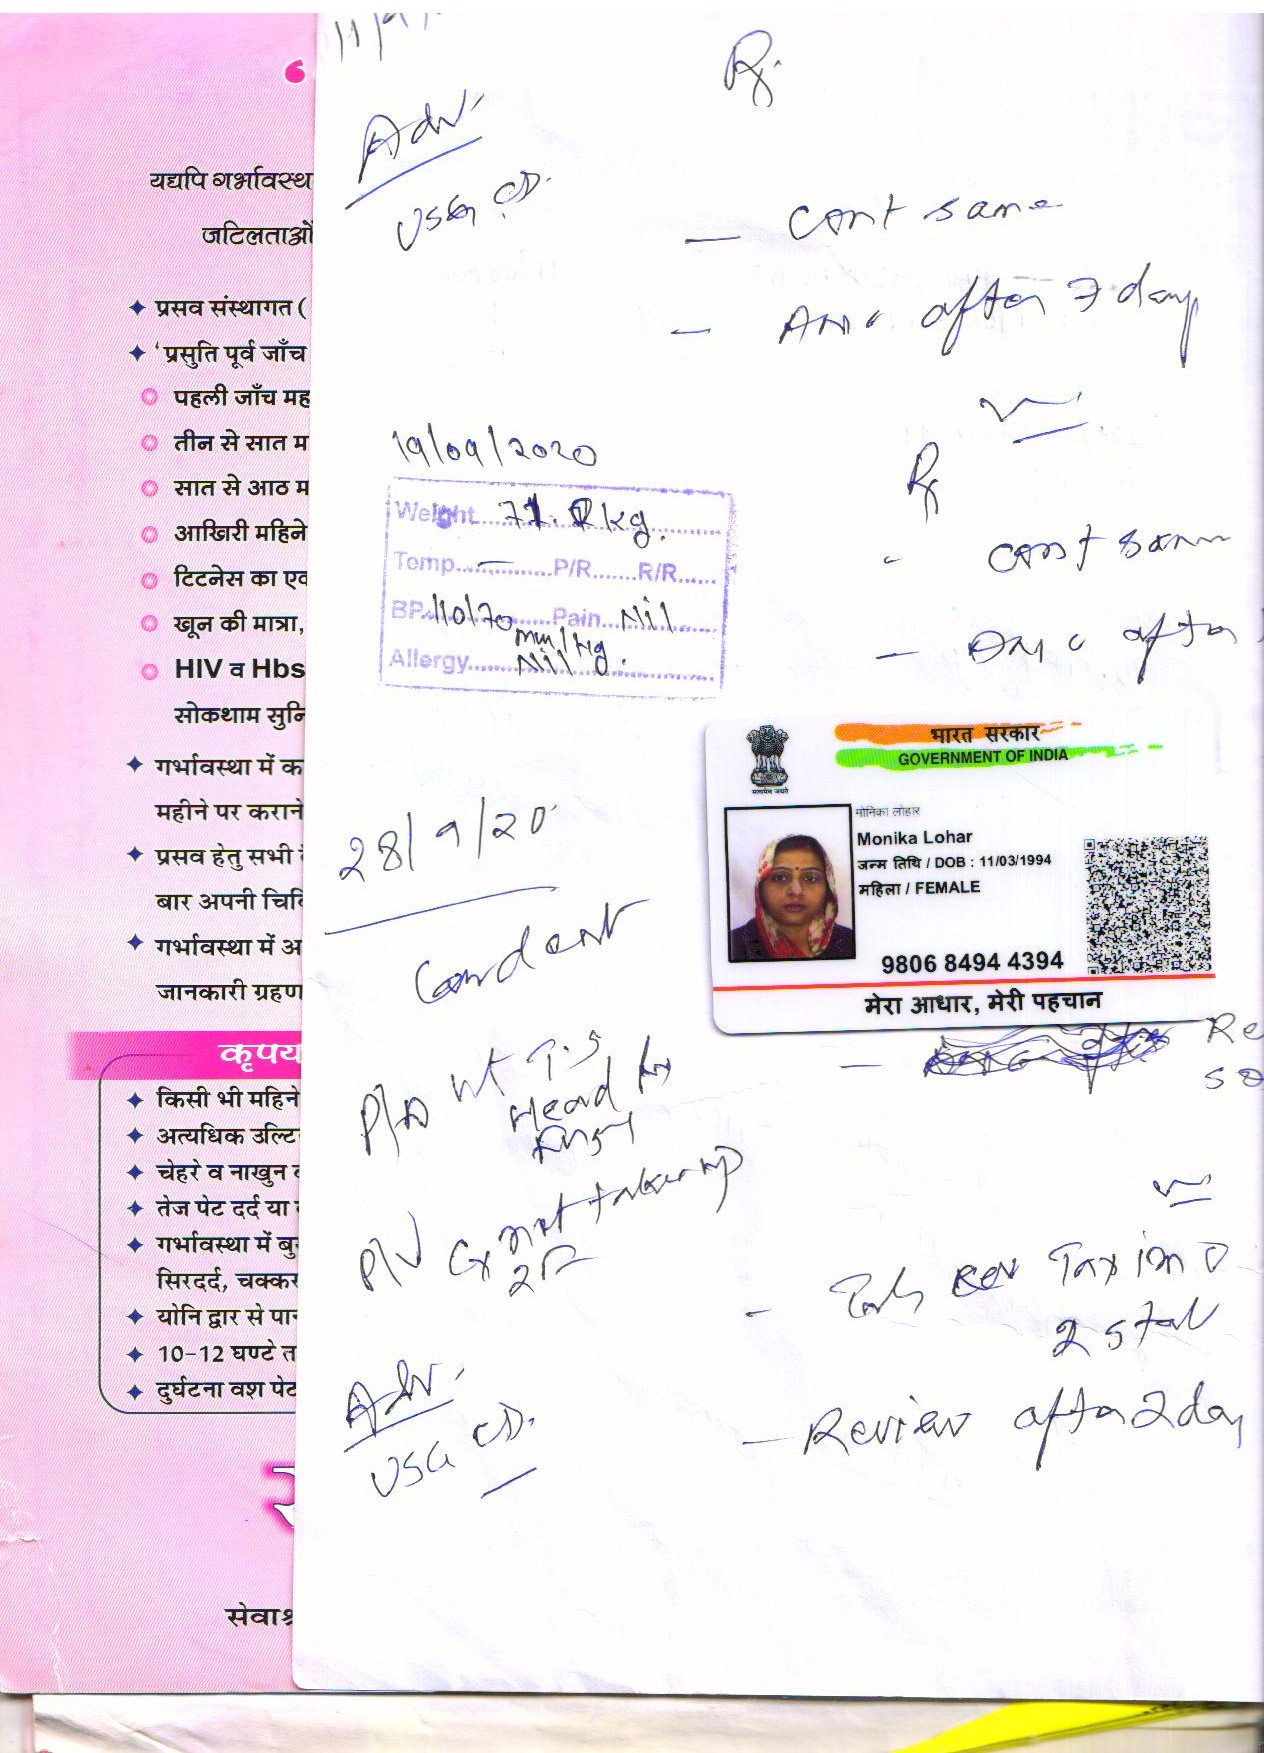 यद्यपि गर्भावस्थ
जटिलताओं
प्रसव संस्थागत (
'प्रसुति पूर्व जाँच
पहली जाँच मह
तीन से सात म
सात से आठ म
आखिरी महिने
टिटनेस का एव
खून की मात्रा,
HIV व Hbs
सोकथाम सुनि
गर्भावस्था में क
महीने पर कराने
प्रसव हेतु सभी
बार अपनी चिि
गर्भावस्था में अ
जानकारी ग्रहण
कृपय
किसी भी महिने
अत्यधिक उल्टि
चेहरे व नाखुन
तेज पेट दर्द या
गर्भावस्था में बु
सिरदर्द, चक्कर
योनि द्वार से पा
10-12 घण्टे त
दुर्घटना वश पेट
सेवाश्र
Rx
Adv.
USG
- cont same
- ANC after 7 day
19/09/2020
Weight 71. kg.
Temp - P/R R/R
BP 110/70 mm/Hg Pain Nil
Allergy Nil
Rx
- cont same
- ANC after
भारत सरकार
GOVERNMENT OF INDIA
सत्यमेव जयते
मोनिका लोहार
Monika Lohar
जन्म तिथि / DOB : 11/03/1994
महिला / FEMALE
9806 8494 4394
मेरा आधार, मेरी पहचान
28/9/20
P/A Ht T.S
Head
P/V Cx not taken up
Adv.
USG
- Tab Taxim O
2 stat
- Review after 2 day